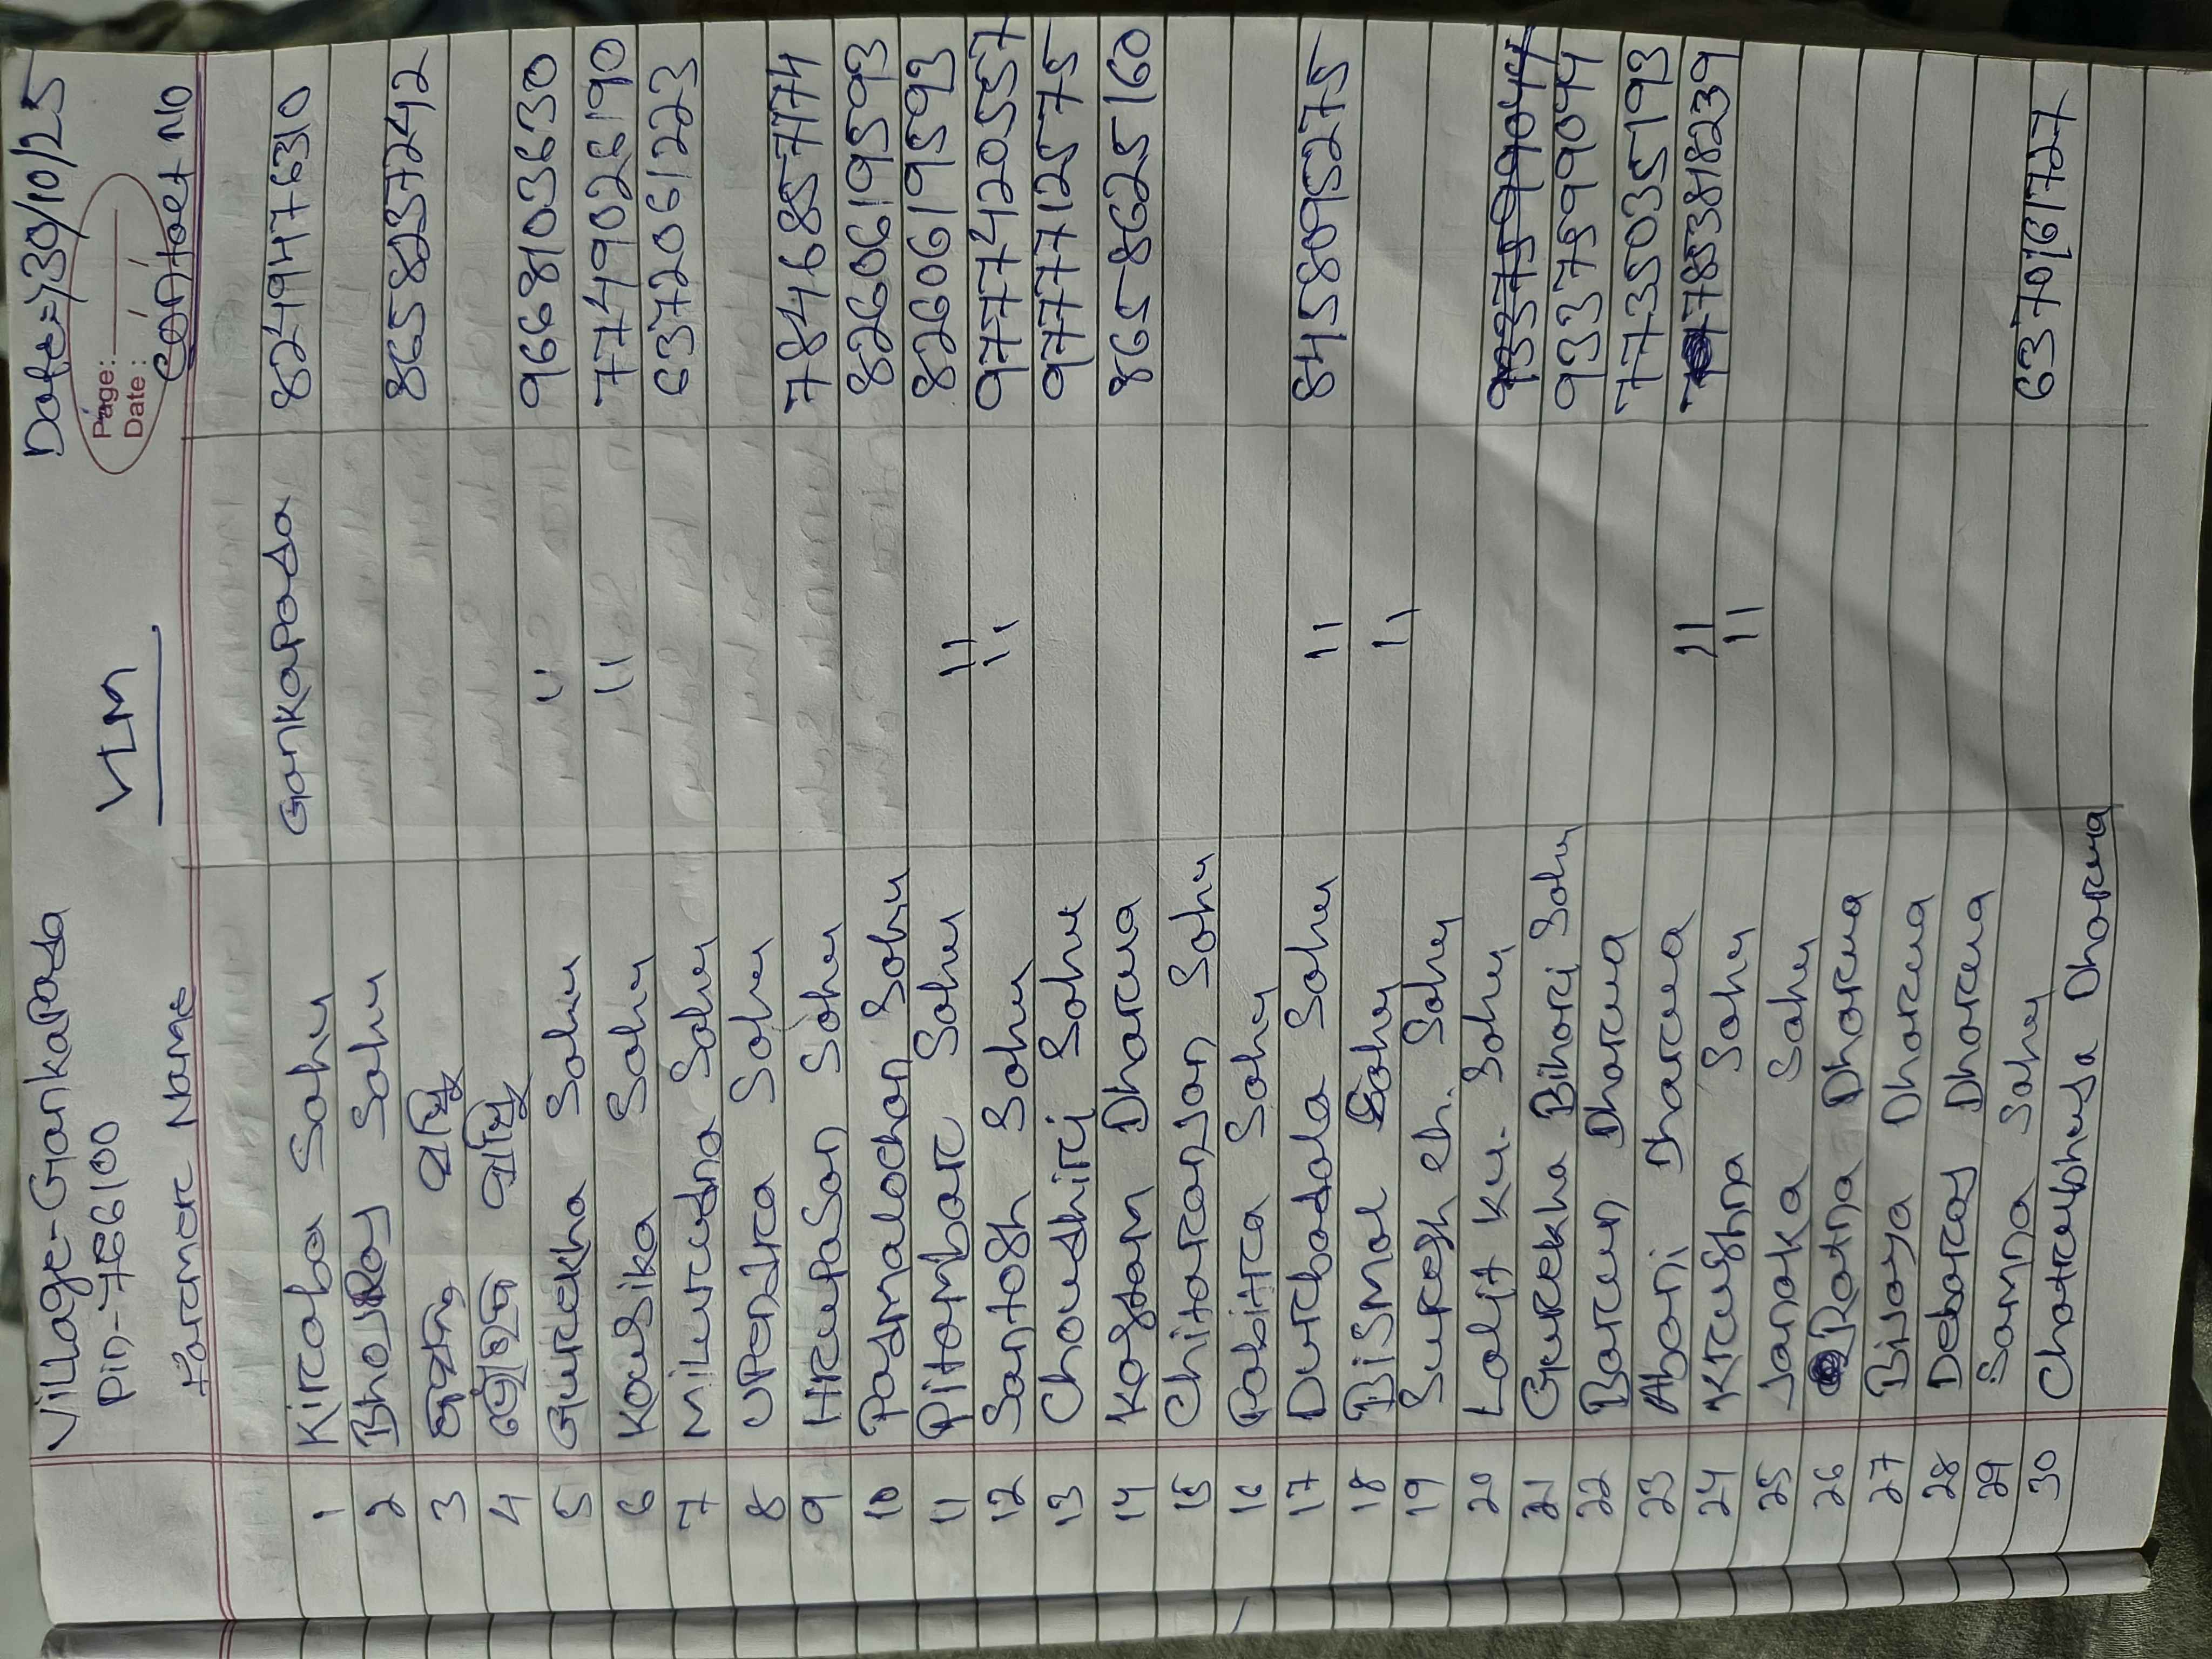 Village-Gankapada Date=>30/10/25
Pin-766100 VLM Page:
Date: / /
Farmer Name Contact No
1 Kiraba Sahu Gankapada 8249476310
2 BhojRaj Sahu
3 ସାହୁ 8658237242
4 ସାହୁ
5 Gurekha Sahu " 9668103630
6 Kausika Sahu " 7749026190
7 Milurudra Sahu 6372061223
8 Upendra Sahu
9 Hrupasan Sahu 7846857774
10 Padmalochan Sahu 8260619593
11 Pitambar Sahu " 8260619593
12 Santosh Sahu " 9777420557
13 Choudhiri Sahu 9777712575
14 Kastam Dharua 8658625160
15 Chitaranjan Sahu
16 Pabitra Sahu
17 Durbadala Sahu " 8458095275
18 Bismal Sahu "
19 Suresh ch. Sahu
20 Lalit Ku. Sahu
21 Gurekha Bihari Sahu
22 Barun Dharua 9337599044
23 Abani Dharua 7735035193
24 Krushna Sahu " 7853818239
25 Janaka Sahu "
26 Ratna Dharua
27 Bijaya Dharua
28 Debaraj Dharua
29 Samna Sahu
30 Chatrubhuja Dharua 6370161727